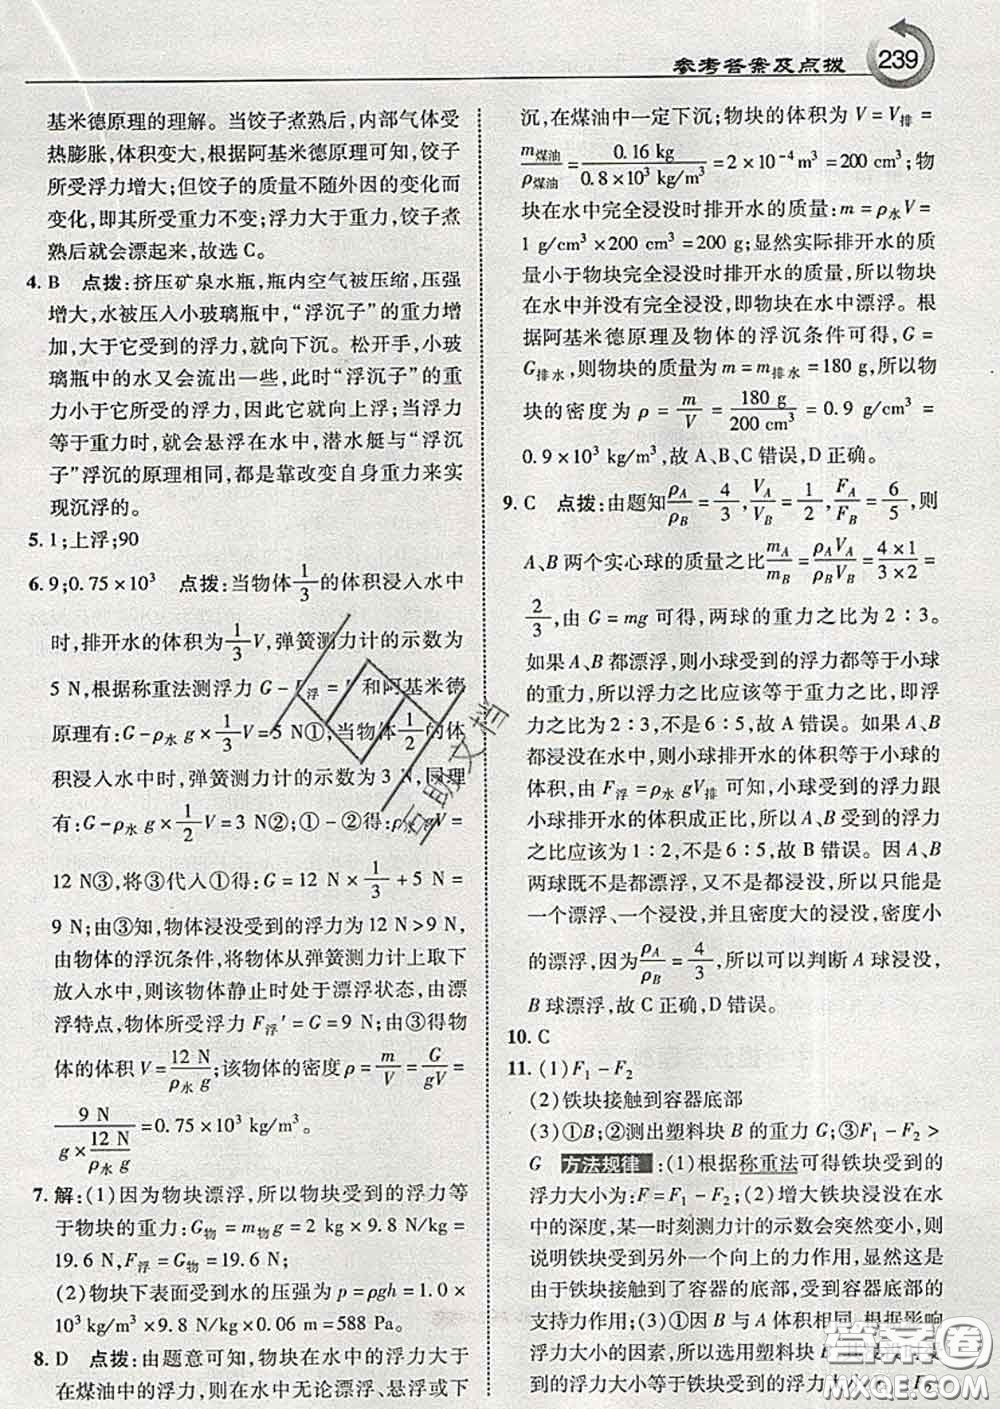 参考答案及点拨
239
基米德原理的理解。当饺子煮熟后,内部气体受
热膨胀,体积变大,根据阿基米德原理可知,饺子
所受浮力增大;但饺子的质量不随外因的变化而
变化,即其所受重力不变;浮力大于重力,饺子煮
熟后就会漂起来,故选 C。
4. B 点拨:挤压矿泉水瓶,瓶内空气被压缩,压强
增大,水被压入小玻璃瓶中,“浮沉子”的重力增
加,大于它受到的浮力,就向下沉。松开手,小玻
璃瓶中的水又会流出一些,此时“浮沉子”的重
力小于它所受的浮力,因此它就向上浮;当浮力
等于重力时,就会悬浮在水中,潜水艇与“浮沉
子”浮沉的原理相同,都是靠改变自身重力来实
现沉浮的。
5. 1;上浮;90
6. 9;0.75×10³ 点拨:当物体1/3的体积浸入水中
时,排开水的体积为1/3V,弹簧测力计的示数为
5 N,根据称重法测浮力 G - 浮 = 和阿基米德
原理有:G-ρ水 g×1/3V=5 N①;当物体1/2的体
积浸入水中时,弹簧测力计的示数为 3 N,同理
有:G-ρ水 g×1/2V=3 N②;①-②得:ρ水 gV=
12 N③,将③代入①得:G=12 N×1/3+5 N=
9 N;由③知,物体浸没受到的浮力为 12 N>9 N,
由物体的浮沉条件,将物体从弹簧测力计上取下
放入水中,则该物体静止时处于漂浮状态,由漂
浮特点,物体所受浮力 F浮′=G=9 N;由③得物
体的体积 V=12 N/ρ水 g;该物体的密度 ρ=m/V=G/gV=
9 N/(g×12 N/ρ水 g)=0.75×10³ kg/m³。
7. 解:(1)因为物块漂浮,所以物块受到的浮力等
于物块的重力:G物=m物g=2 kg×9.8 N/kg=
19.6 N,F浮=G物=19.6 N;
(2)物块下表面受到水的压强为 p=ρgh=1.0×
10³ kg/m³×9.8 N/kg×0.06 m=588 Pa。
8. D 点拨:由题意可知,物块在水中的浮力大于
在煤油中的浮力,则在水中无论漂浮、悬浮或下
沉,在煤油中一定下沉;物块的体积为 V=V排=
m煤油/ρ煤油=0.16 kg/0.8×10³ kg/m³=2×10⁻⁴ m³=200 cm³;物
块在水中完全浸没时排开水的质量:m=ρ水V=
1 g/cm³×200 cm³=200 g;显然实际排开水的质
量小于物块完全浸没时排开水的质量,所以物块
在水中并没有完全浸没,即物块在水中漂浮。根
据阿基米德原理及物体的浮沉条件可得,G=
G排水,则物块的质量为 m=m排水=180 g,所以物
块的密度为 ρ=m/V=180 g/200 cm³=0.9 g/cm³=
0.9×10³ kg/m³,故 A、B、C 错误,D 正确。
9. C 点拨:由题知ρA/ρB=4/3,VA/VB=1/2,FA/FB=6/5,则
A、B 两个实心球的质量之比mA/mB=ρAVA/ρBVB=4×1/3×2=
2/3,由 G=mg 可得,两球的重力之比为 2∶3。
如果 A、B 都漂浮,则小球受到的浮力都等于小球
的重力,所以浮力之比应该等于重力之比,即浮
力之比为 2∶3,不是 6∶5,故 A 错误。如果 A、B
都浸没在水中,则小球排开水的体积等于小球
的体积,由 F浮=ρ水 gV排 可知,小球受到的浮力跟
小球排开水的体积成正比,所以 A、B 受到的浮力
之比应该为 1∶2,不是 6∶5,故 B 错误。因 A、B
两球既不是都漂浮,又不是都浸没,所以只能是
一个漂浮、一个浸没,并且密度大的浸没,密度小
的漂浮,因为ρA/ρB=4/3,所以可以判断 A 球浸没,
B 球漂浮,故 C 正确,D 错误。
10. C
11. (1)F₁-F₂
(2)铁块接触到容器底部
(3)①B;②测出塑料块 B 的重力 G;③F₁-F₂>
G 方法规律:(1)根据称重法可得铁块受到的
浮力大小为:F=F₁-F₂;(2)增大铁块浸没在水
中的深度,某一时刻测力计的示数会突然变小,则
说明铁块受到另外一个向上的力作用,显然这是
由于铁块接触到了容器的底部,受到容器底部的
支持力作用;(3)①因为 A 与 A 体积相同,消除影响
力大小的因素,所以选用塑料块
到的浮力大小等于铁块受到的浮力大小
答案圈
MXQE.COM